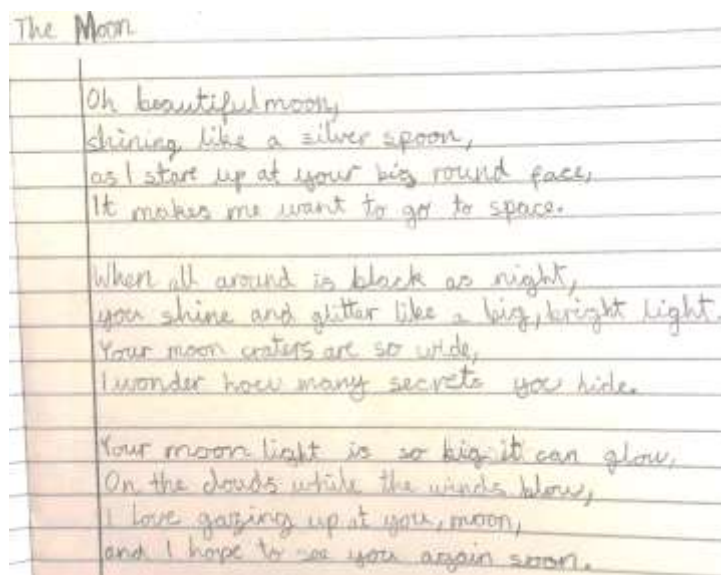 The Moon
Oh beautiful moon,
shining like a silver spoon,
as I stare up at your big round face,
It makes me want to go to space.
When all around is black as night,
you shine and glitter like a big, bright light.
Your moon craters are so wide,
I wonder how many secrets you hide.
Your moon light is so big it can glow,
On the clouds while the winds blow,
I love gazing up at you, moon,
and I hope to see you again soon.